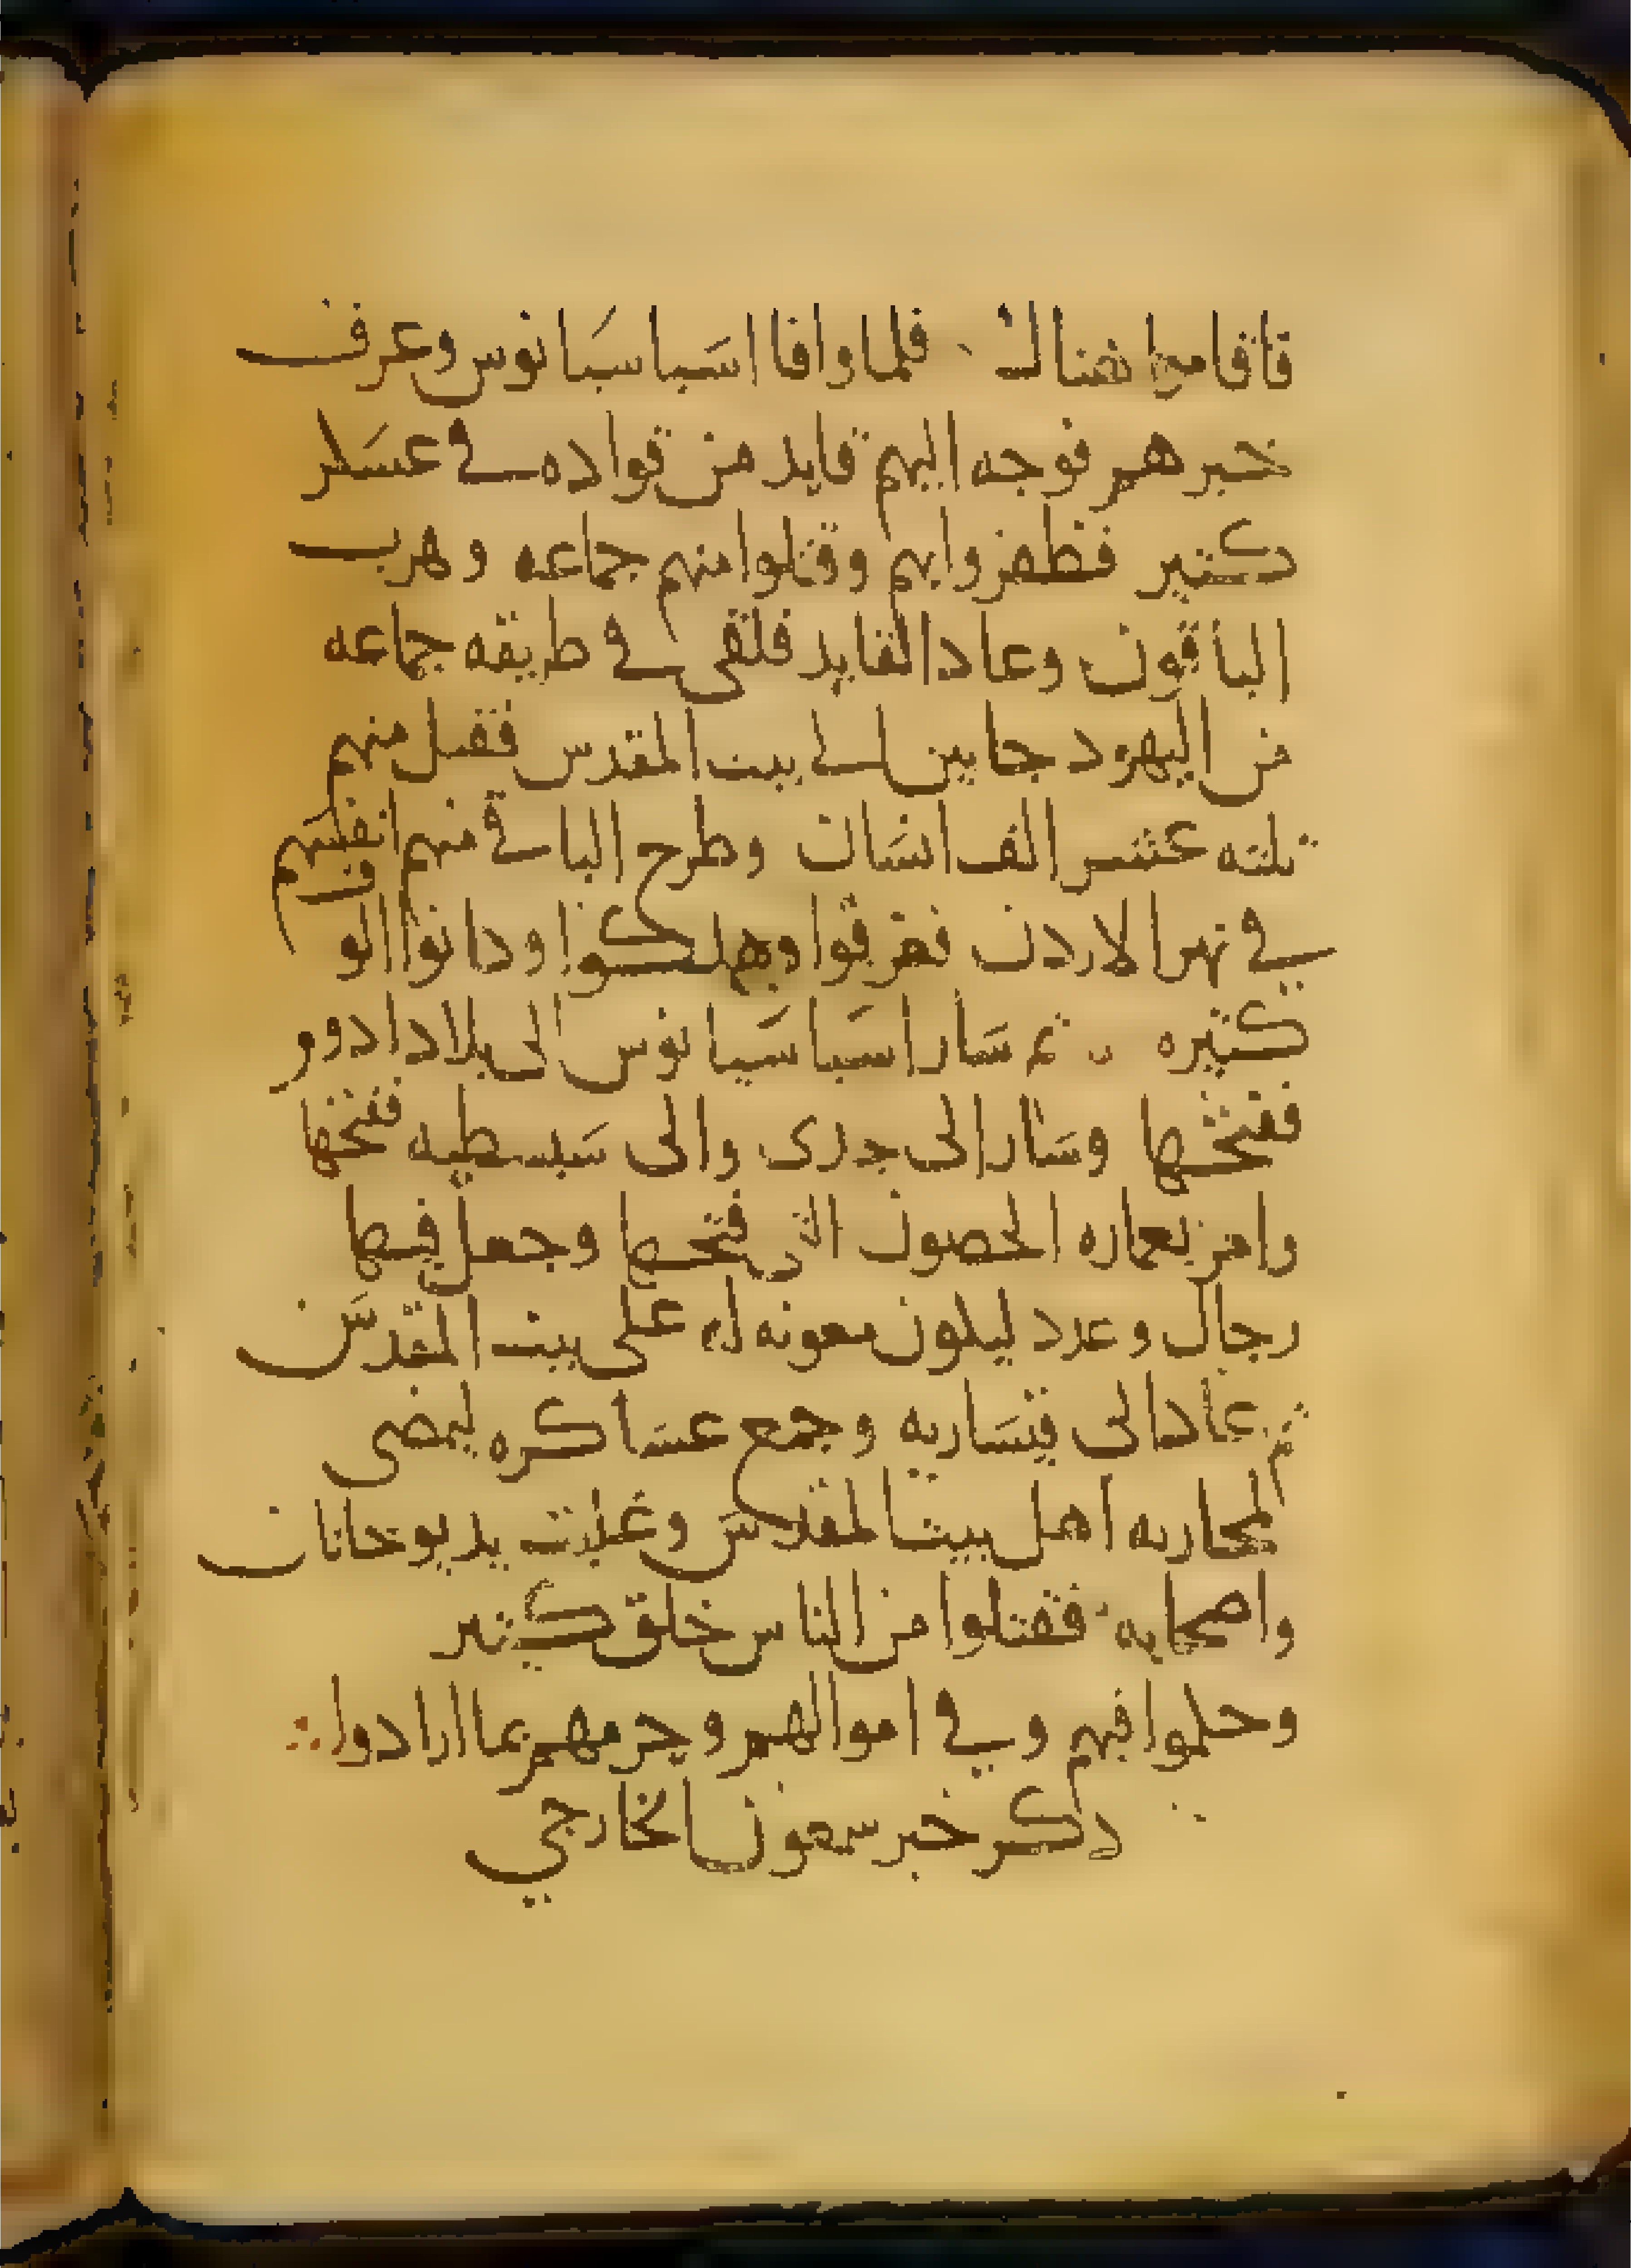 فاقاموا هناك فلما وافا اسباسيانوس وعرف
خبرهم فوجه اليهم قايد من قواده في عسكر
كثير فظفروا بهم وقتلوا منهم جماعه وهرب
الباقون وعاد القايد فلقى في طريقه جماعه
من اليهود جايين الى بيت المقدس فقتل منهم
ثلثه عشر الف انسان وطرح الباقي منهم انفسهم
في نهر الاردن فغرقوا وهلكوا وكانوا الوف
كثيره ثم سار اسباسيانوس الى بلاد ادوم
ففتحها وسار الى جدرى والى سبسطيه ففتحها
وامر بعماره الحصون الذي فتحها وجعل فيها
رجال وعدد ليكون معونه له على بيت المقدس
ثم عاد الى قيساريه وجمع عساكره ليمضى
لمحاربه اهل بيت المقدس وغلبت يد يوحانان
واصحابه فقتلوا من الناس خلق كثير
وحكموا فيهم وفي اموالهم وحرمهم بما ارادوا
ذكر خبر سمعون الخارجي